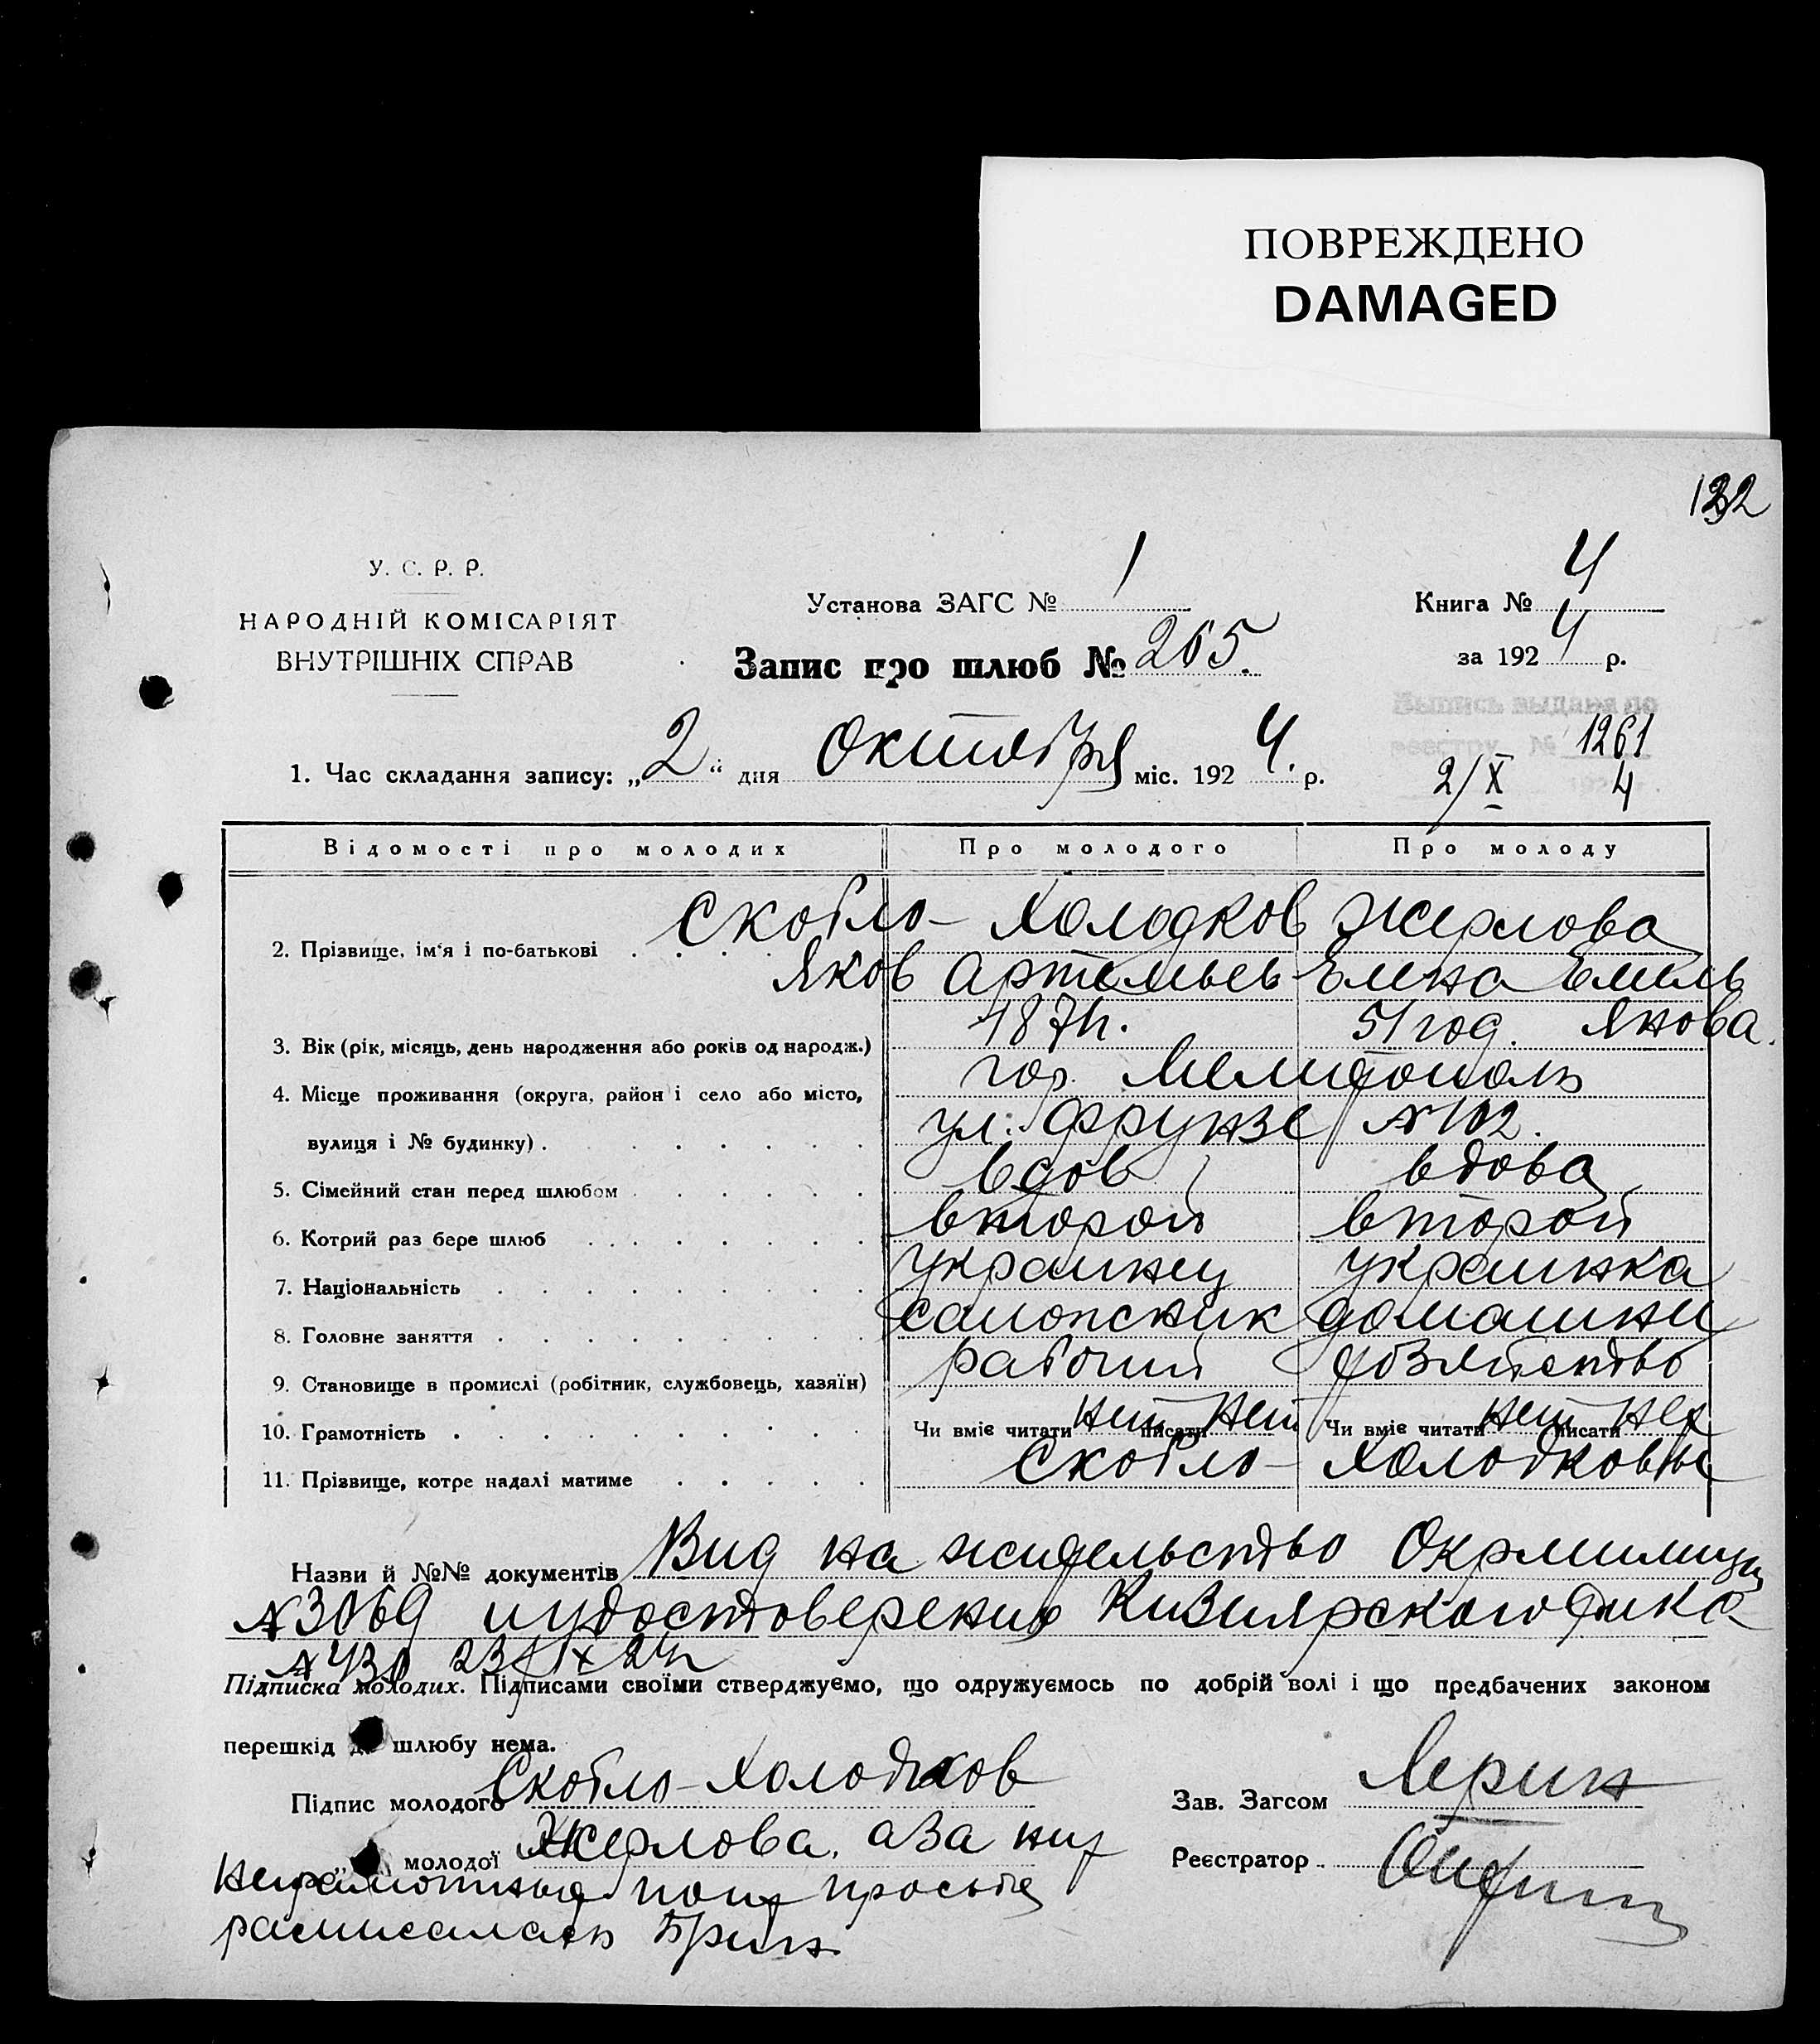 ПОВРЕЖДЕНО
DAMAGED
132
У. С. Р. Р.
НАРОДНІЙ КОМІСАРІЯТ
ВНУТРІШНІХ СПРАВ
Установа ЗАГС № 1
Книга № 4
за 1924 р.
Запис про шлюб № 265.
Выпись выдана по
реестру № 1261
2/X 4
1. Час складання запису: „2“ дня Октября міс. 1924. р.
Відомості про молодих Про молодого Про молоду
2. Прізвище, ім'я і по-батькові Скобло- Холодков Жерлова
Яков Артемьев Елена Емель
янова.
3. Вік (рік, місяць, день народження або років од народж.) 1871г. 51 год.
4. Місце проживання (округа, район і село або місто, гор. Мелитополь
вулиця і № будинку) ул. Фрунзе №102.
5. Сімейний стан перед шлюбом вдов вдова
6. Котрий раз бере шлюб второй второй
7. Національність украинец украинка
8. Головне заняття сапожник домашнее
9. Становище в промислі (робітник, службовець, хазяїн) рабочий хозяйство
10. Грамотність Чи вміє читати нет писати нет Чи вміє читати нет писати нет
11. Прізвище, котре надалі матиме Скобло- Холодковы
Назви й №№ документів Вид на жительство Окрмилиции
№3069 и удостоверение Кизиярского
23/IX 24г
Підписка молодих. Підписами своїми стверджуємо, що одружуємось по добрій волі і що предбачених законом
перешкід до шлюбу нема.
Підпис молодого Скобло-Холодков
Зав. Загсом
молодої Жерлова, а за них
Реєстратор
неграмотных по их просьбе
расписалась